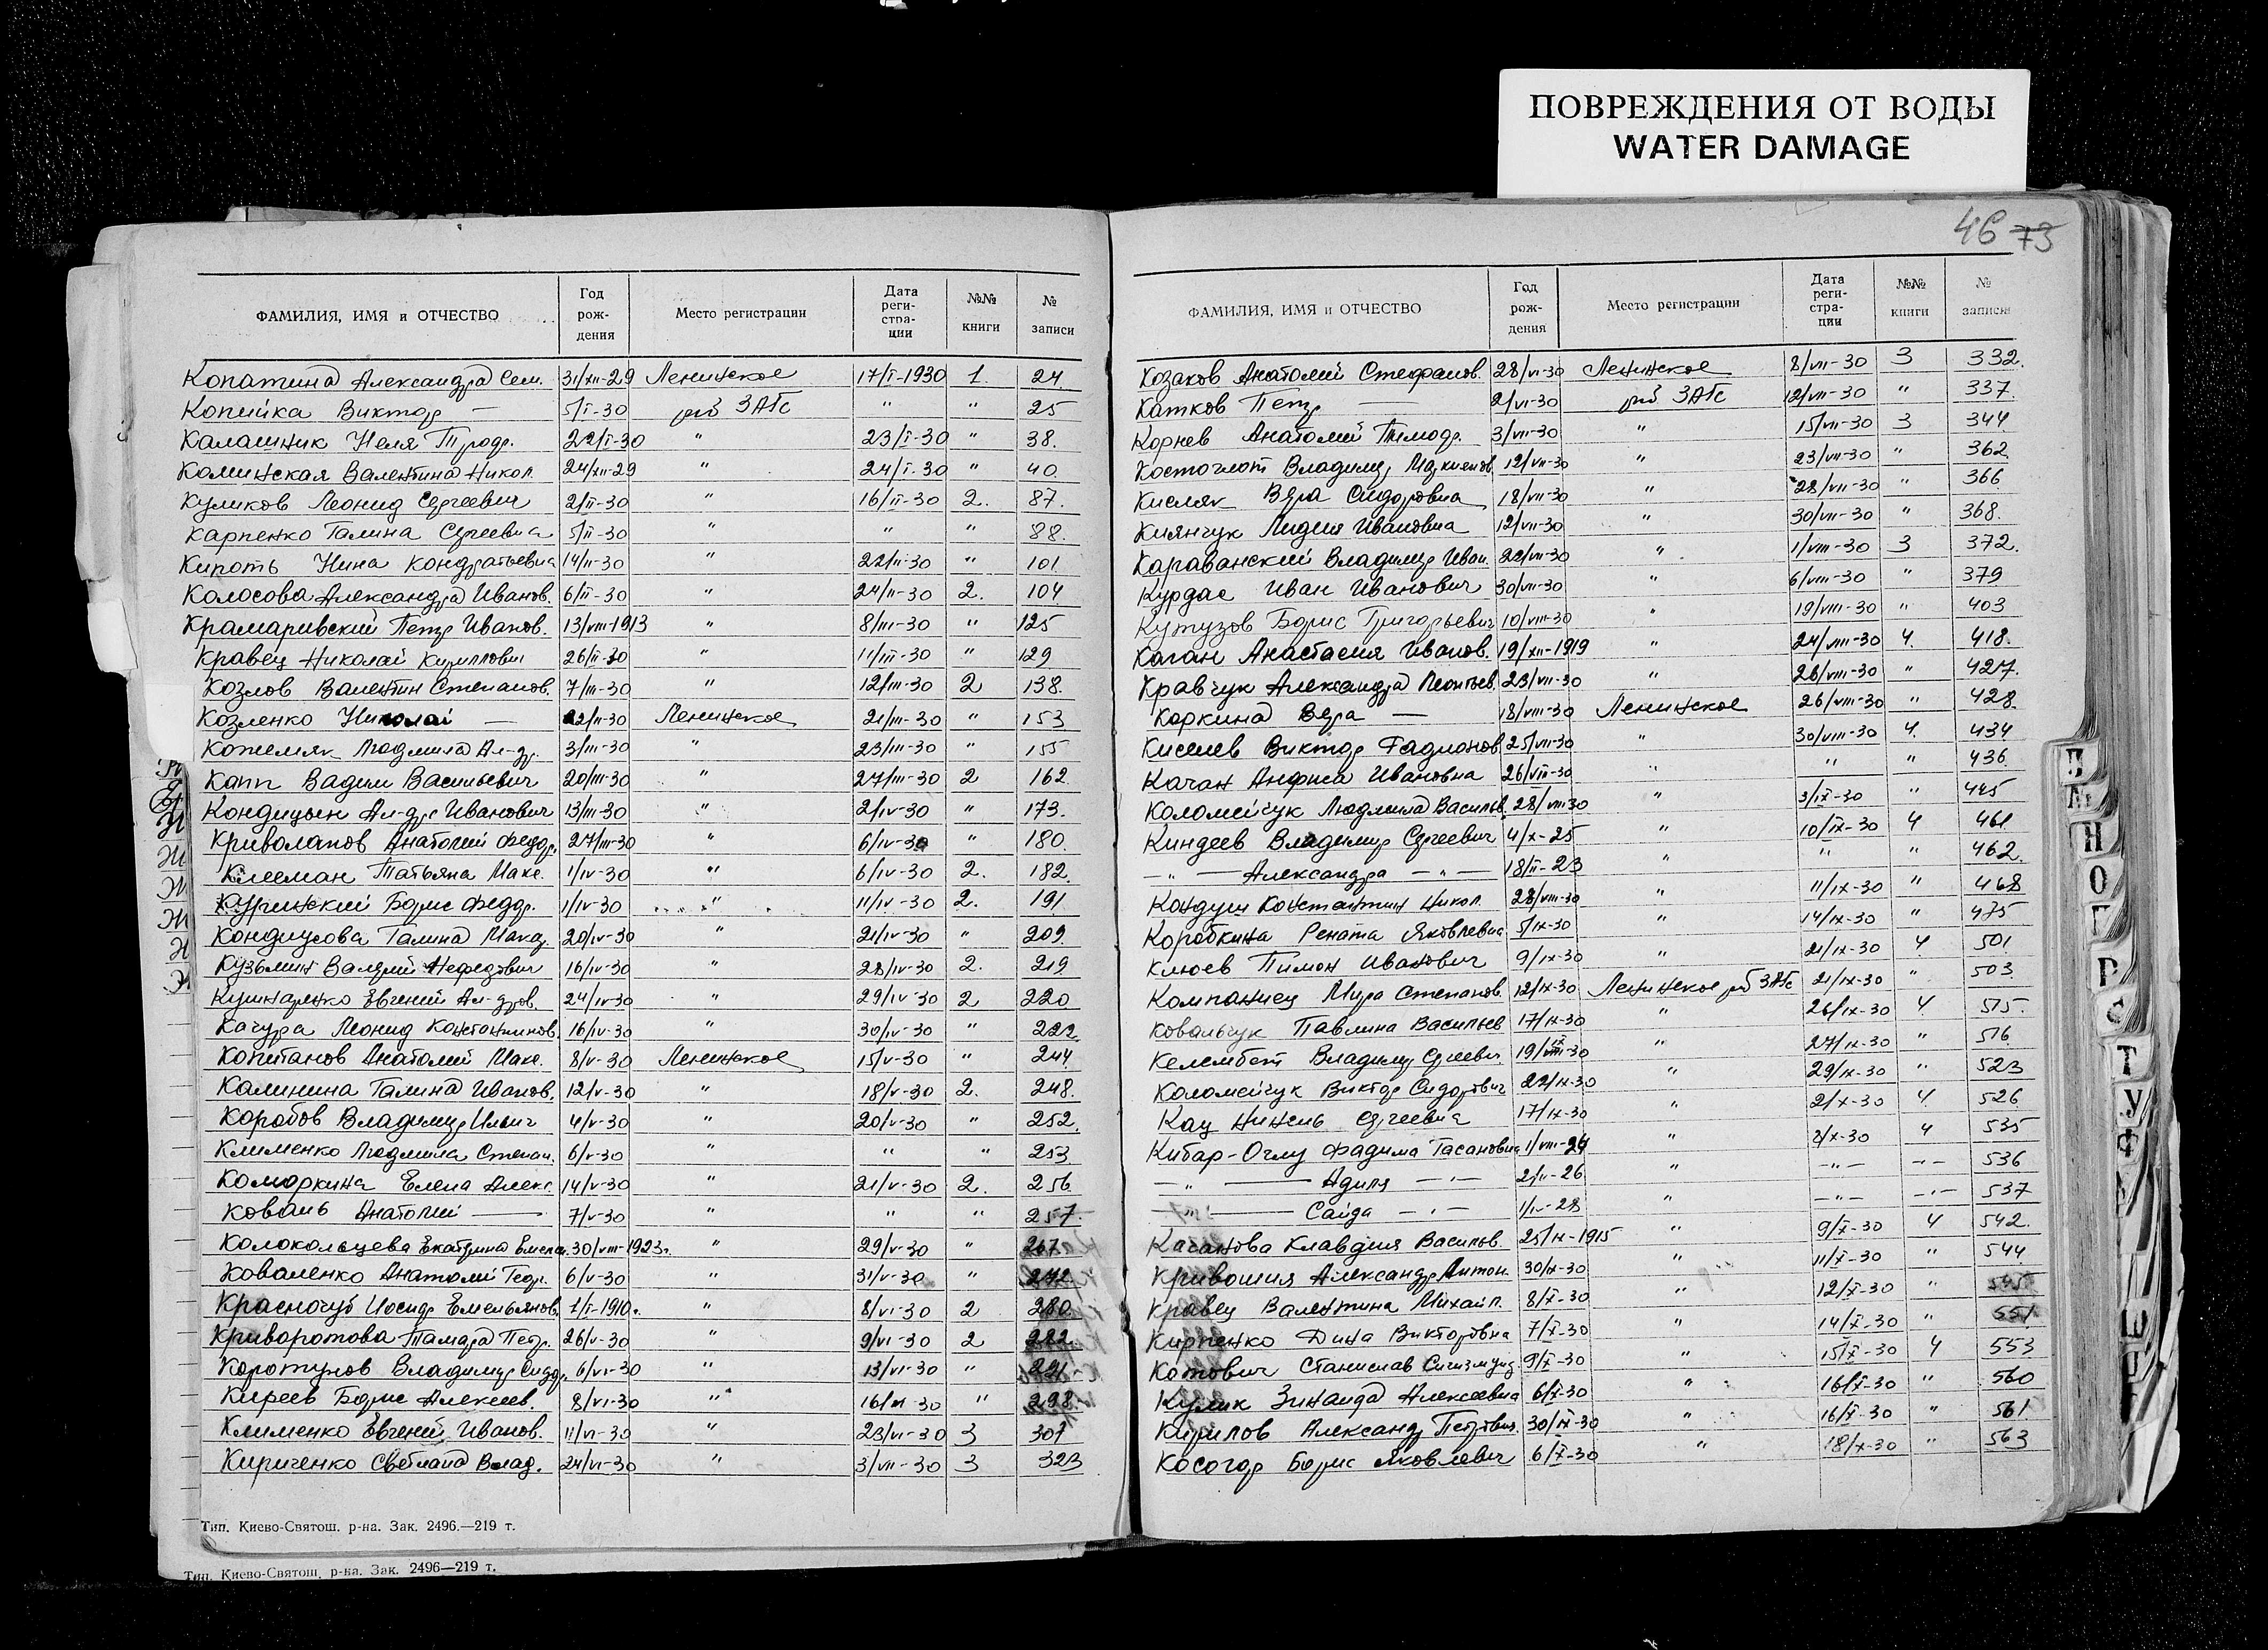 ПОВРЕЖДЕНИЯ ОТ ВОДЫ
WATER DAMAGE
46 73
ФАМИЛИЯ, ИМЯ и ОТЧЕСТВО Год рождения Место регистрации Дата регистрации №№ книги № записи
Копатина Александра Сем. 31/XII-29 Ленинское 17/I-1930 1. 24
Копийка Виктор — 5/I-30 рай ЗАГС " " 25
Калашник Неля Трофр. 22/I-30 " 23/I-30 " 38.
Каминская Валентина Никол. 24/XII-29 " 24/I-30 " 40.
Куликов Леонид Сергеевич 2/II-30 " 16/II-30 2. 87.
Карпенко Галина Сергеевна 5/II-30 " " " 88.
Кироть Нина Кондратьевна 14/II-30 " 22/II-30 " 101
Колосова Александра Иванов. 6/II-30 " 24/II-30 2. 104
Крамаривский Петр Иванов. 13/VIII-1913 " 8/III-30 " 125
Кравец Николай Кириллович 26/II-30 " 11/III-30 " 129
Козлов Валентин Степанов. 7/III-30 " 12/III-30 2 138.
Козленко Николай — 22/II-30 Ленинское 21/III-30 " 153
Кожемяк Людмила Ал-др. 3/III-30 " 23/III-30 " 155
Капп Вадим Васильевич 20/III-30 " 27/III-30 2 162
Кондицын Ал-др Иванович 13/III-30 " 2/IV-30 " 173.
Криволапов Анатолий Федор. 27/III-30 " 6/IV-30 " 180.
Клееман Татьяна Макс. 1/IV-30 " 6/IV-30 2. 182.
Куринский Борис Федор. 1/IV-30 " 11/IV-30 2. 191
Галина Макар. 20/IV-30 " 21/IV-30 " 209.
Кузьмин Валерий Нефедович 16/IV-30 " 28/IV-30 2. 219
Кушнаренко Евгений Ал-дров. 24/IV-30 " 29/IV-30 2 220
Качура Леонид Константинов. 16/IV-30 " 30/IV-30 " 222
Копитанов Анатолий Макс. 8/V-30 Ленинское 15/V-30 " 244.
Калинина Галина Иванов. 12/V-30 " 18/V-30 2. 248.
Коробов Владимир Ильич 4/V-30 " 20/V-30 " 252.
Клименко Людмила Степан. 6/V-30 " " " 253
Коморкина Елена Алекс. 14/V-30 " 21/V-30 2. 256.
Коваль Анатолий — 7/V-30 " " " 257.
Колокольцева Екатерина Емельян. 30/VIII-1923г. " 29/V-30 " 267
Коваленко Анатолий Георг. 6/V-30 " 31/V-30 " 272
Красночуб Иосиф Емельянов. 1/I-1910г. " 8/VI-30 2 280
Криворотова Тамара Петр. 26/V-30 " 9/VI-30 2 282
Коротунов Владимир Сидор. 6/VI-30 " 13/VI-30 " 291
Киреев Борис Алексеев. 8/VI-30 " 16/VI-30 " 298.
Клименко Евгений Иванов. 11/VI-30 " 23/VI-30 3 307
Кириченко Светлана Влад. 24/VI-30 " 3/VII-30 3 323
Тип. Киево-Святош. р-на. Зак. 2496.—219 т.
Тип. Киево-Святош. р-на. Зак. 2496—219 т.
ФАМИЛИЯ, ИМЯ и ОТЧЕСТВО Год рождения Место регистрации Дата регистрации №№ книги № записи
Козаков Анатолий Стефанов. 28/VI-30 Ленинское 8/VII-30 3 332.
Катков Петр — 2/VI-30 рай ЗАГС 12/VII-30 " 337.
Корнев Анатолий Тимофр. 3/VII-30 " 15/VII-30 3 344
Костоглот Владимир 12/VII-30 " 23/VII-30 " 362
Кисляк Вера Сидоровна 18/VII-30 " 28/VII-30 " 366
Киянчук Лидия Ивановна 12/VII-30 " 30/VII-30 " 368.
Караванский Владимир Иван. 22/VII-30 " 1/VIII-30 3 372.
Курдас Иван Иванович 30/VII-30 " 6/VIII-30 " 379
Кутузов Борис Григорьевич 10/VIII-30 " 19/VIII-30 " 403
Каган Анастасия Иванов. 19/XII-1919 " 24/VIII-30 4. 418.
Кравчук Александра Леонтьев. 23/VII-30 " 26/VIII-30 " 427.
Коркина Вера — 18/VIII-30 Ленинское 26/VIII-30 " 428.
Киселев Виктор Радионов. 25/VII-30 " 30/VIII-30 4. 434
Качан Анфиса Ивановна 26/VII-30 " " " 436
Коломейчук Людмила Васильев. 28/VIII-30 " 3/IX-30 " 445
Киндеев Владимир Сергеевич 4/X-25 " 10/IX-30 4 461
—"— Александра —"— 18/II-23 " " " 462.
Кондуш Константин Никол. 28/VIII-30 " 11/IX-30 " 468
Коробкина Рената Яковлевна 5/IX-30 " 14/IX-30 " 475
Клюев Пимон Иванович 9/IX-30 " 21/IX-30 4 501
Компаниец Мира Степанов. 12/IX-30 Ленинское рай ЗАГС 21/IX-30 " 503.
Ковальчук Павлина Васильев 17/IX-30 " 26/IX-30 4 515.
Келембет Владимир Сергеевич 19/IX-30 " 27/IX-30 " 516.
Коломейчук Виктор Сидорович 22/IX-30 " 29/IX-30 " 523
Кац Нинель Сергеевна 17/IX-30 " 2/X-30 4. 526
Кибар-Оглу Фадима Гасановна 1/VIII-24 " 3/X-30 4 535
—"— Адиля —"— 2/II-26 " —"— —"— 536
—"— Сайда —"— 1/IV-28 " —"— —"— 537
Качанова Клавдия Васильев. 25/IX-1915 " 9/X-30 4 542.
Кривошия Александр Антон. 30/IX-30 " 11/X-30 " 544
Кравец Валентина Михайл. 8/X-30 " 12/X-30 " 545
Кирпенко Дина Викторовна 7/X-30 " 14/X-30 " 551
Котович Станислав Сигизмунд. 9/X-30 " 15/X-30 4 553
Кулик Зинаида Алексеевна 6/X-30 " 16/X-30 " 560
Кирилов Александр Петрович 30/IX-30 " 16/X-30 " 561
Косогор Борис Яковлевич 6/X-30 " 18/X-30 " 563
Н
О
Р
С
Т
У
Ф
Ш